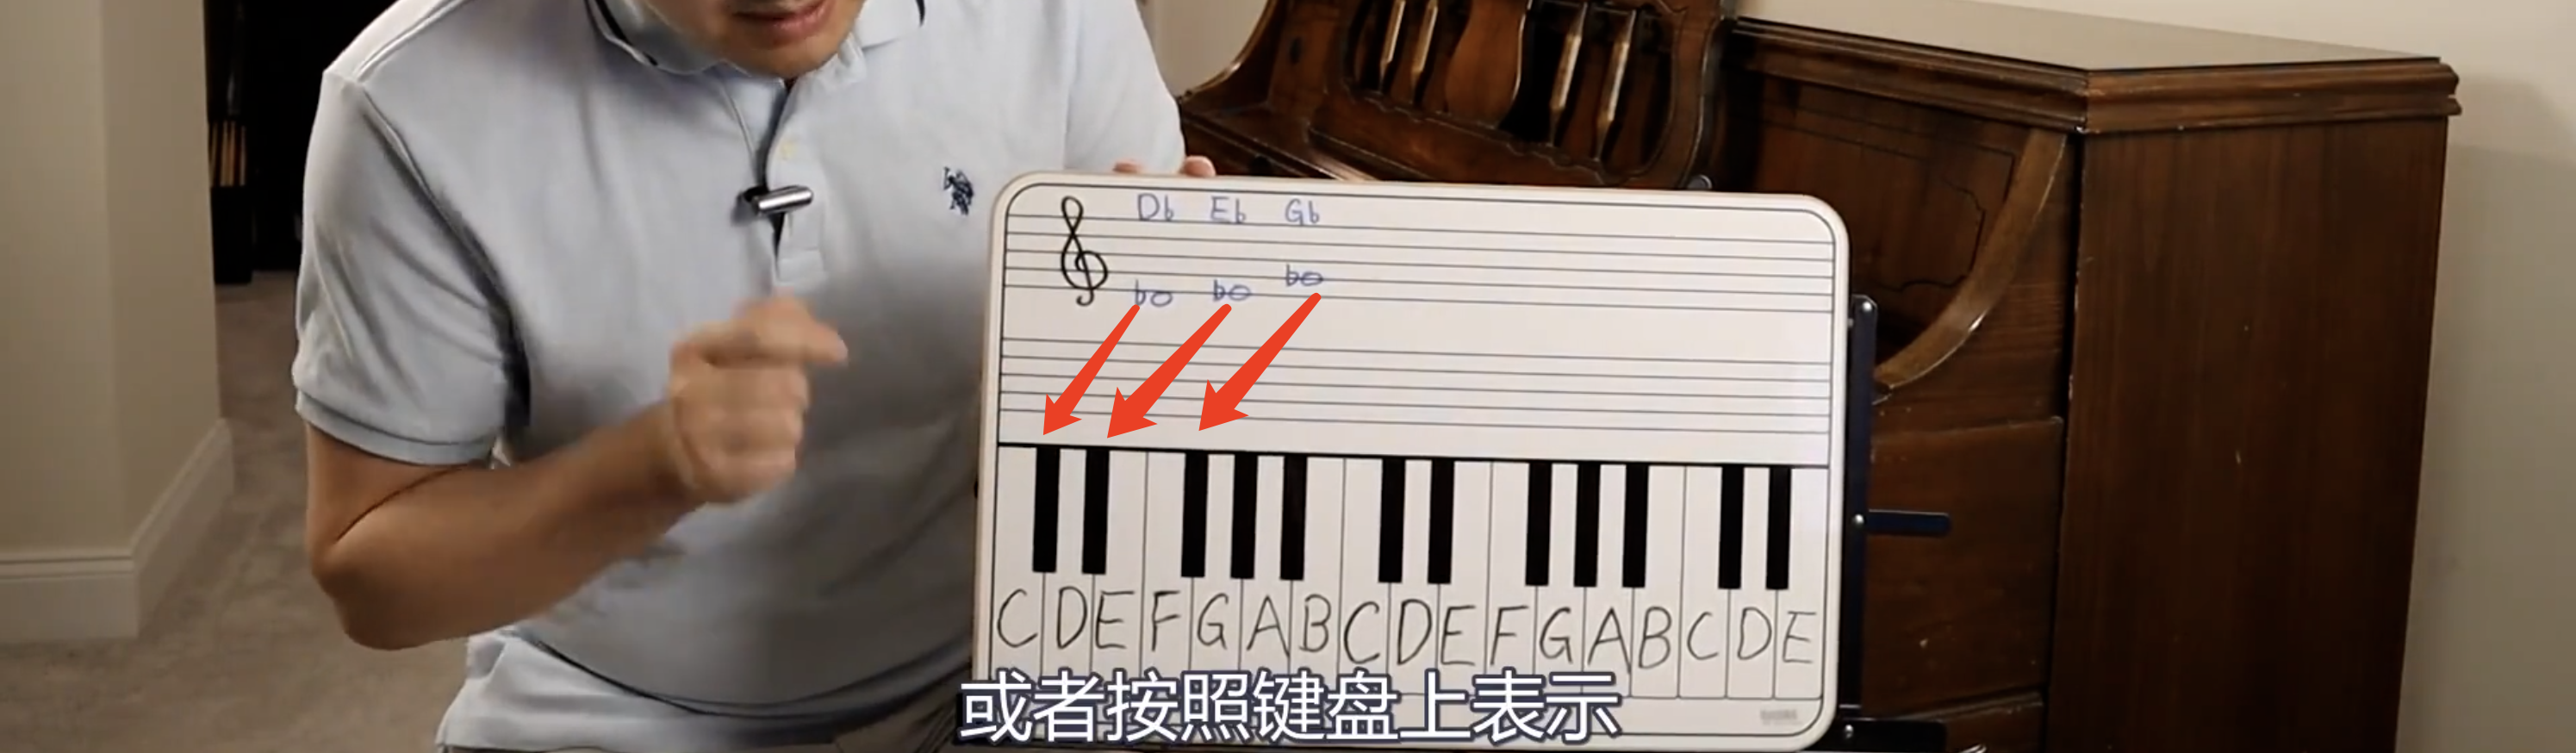 D♭ E♭ G♭
C D E F G A B C D E F G A B C D E
或者按照键盘上表示